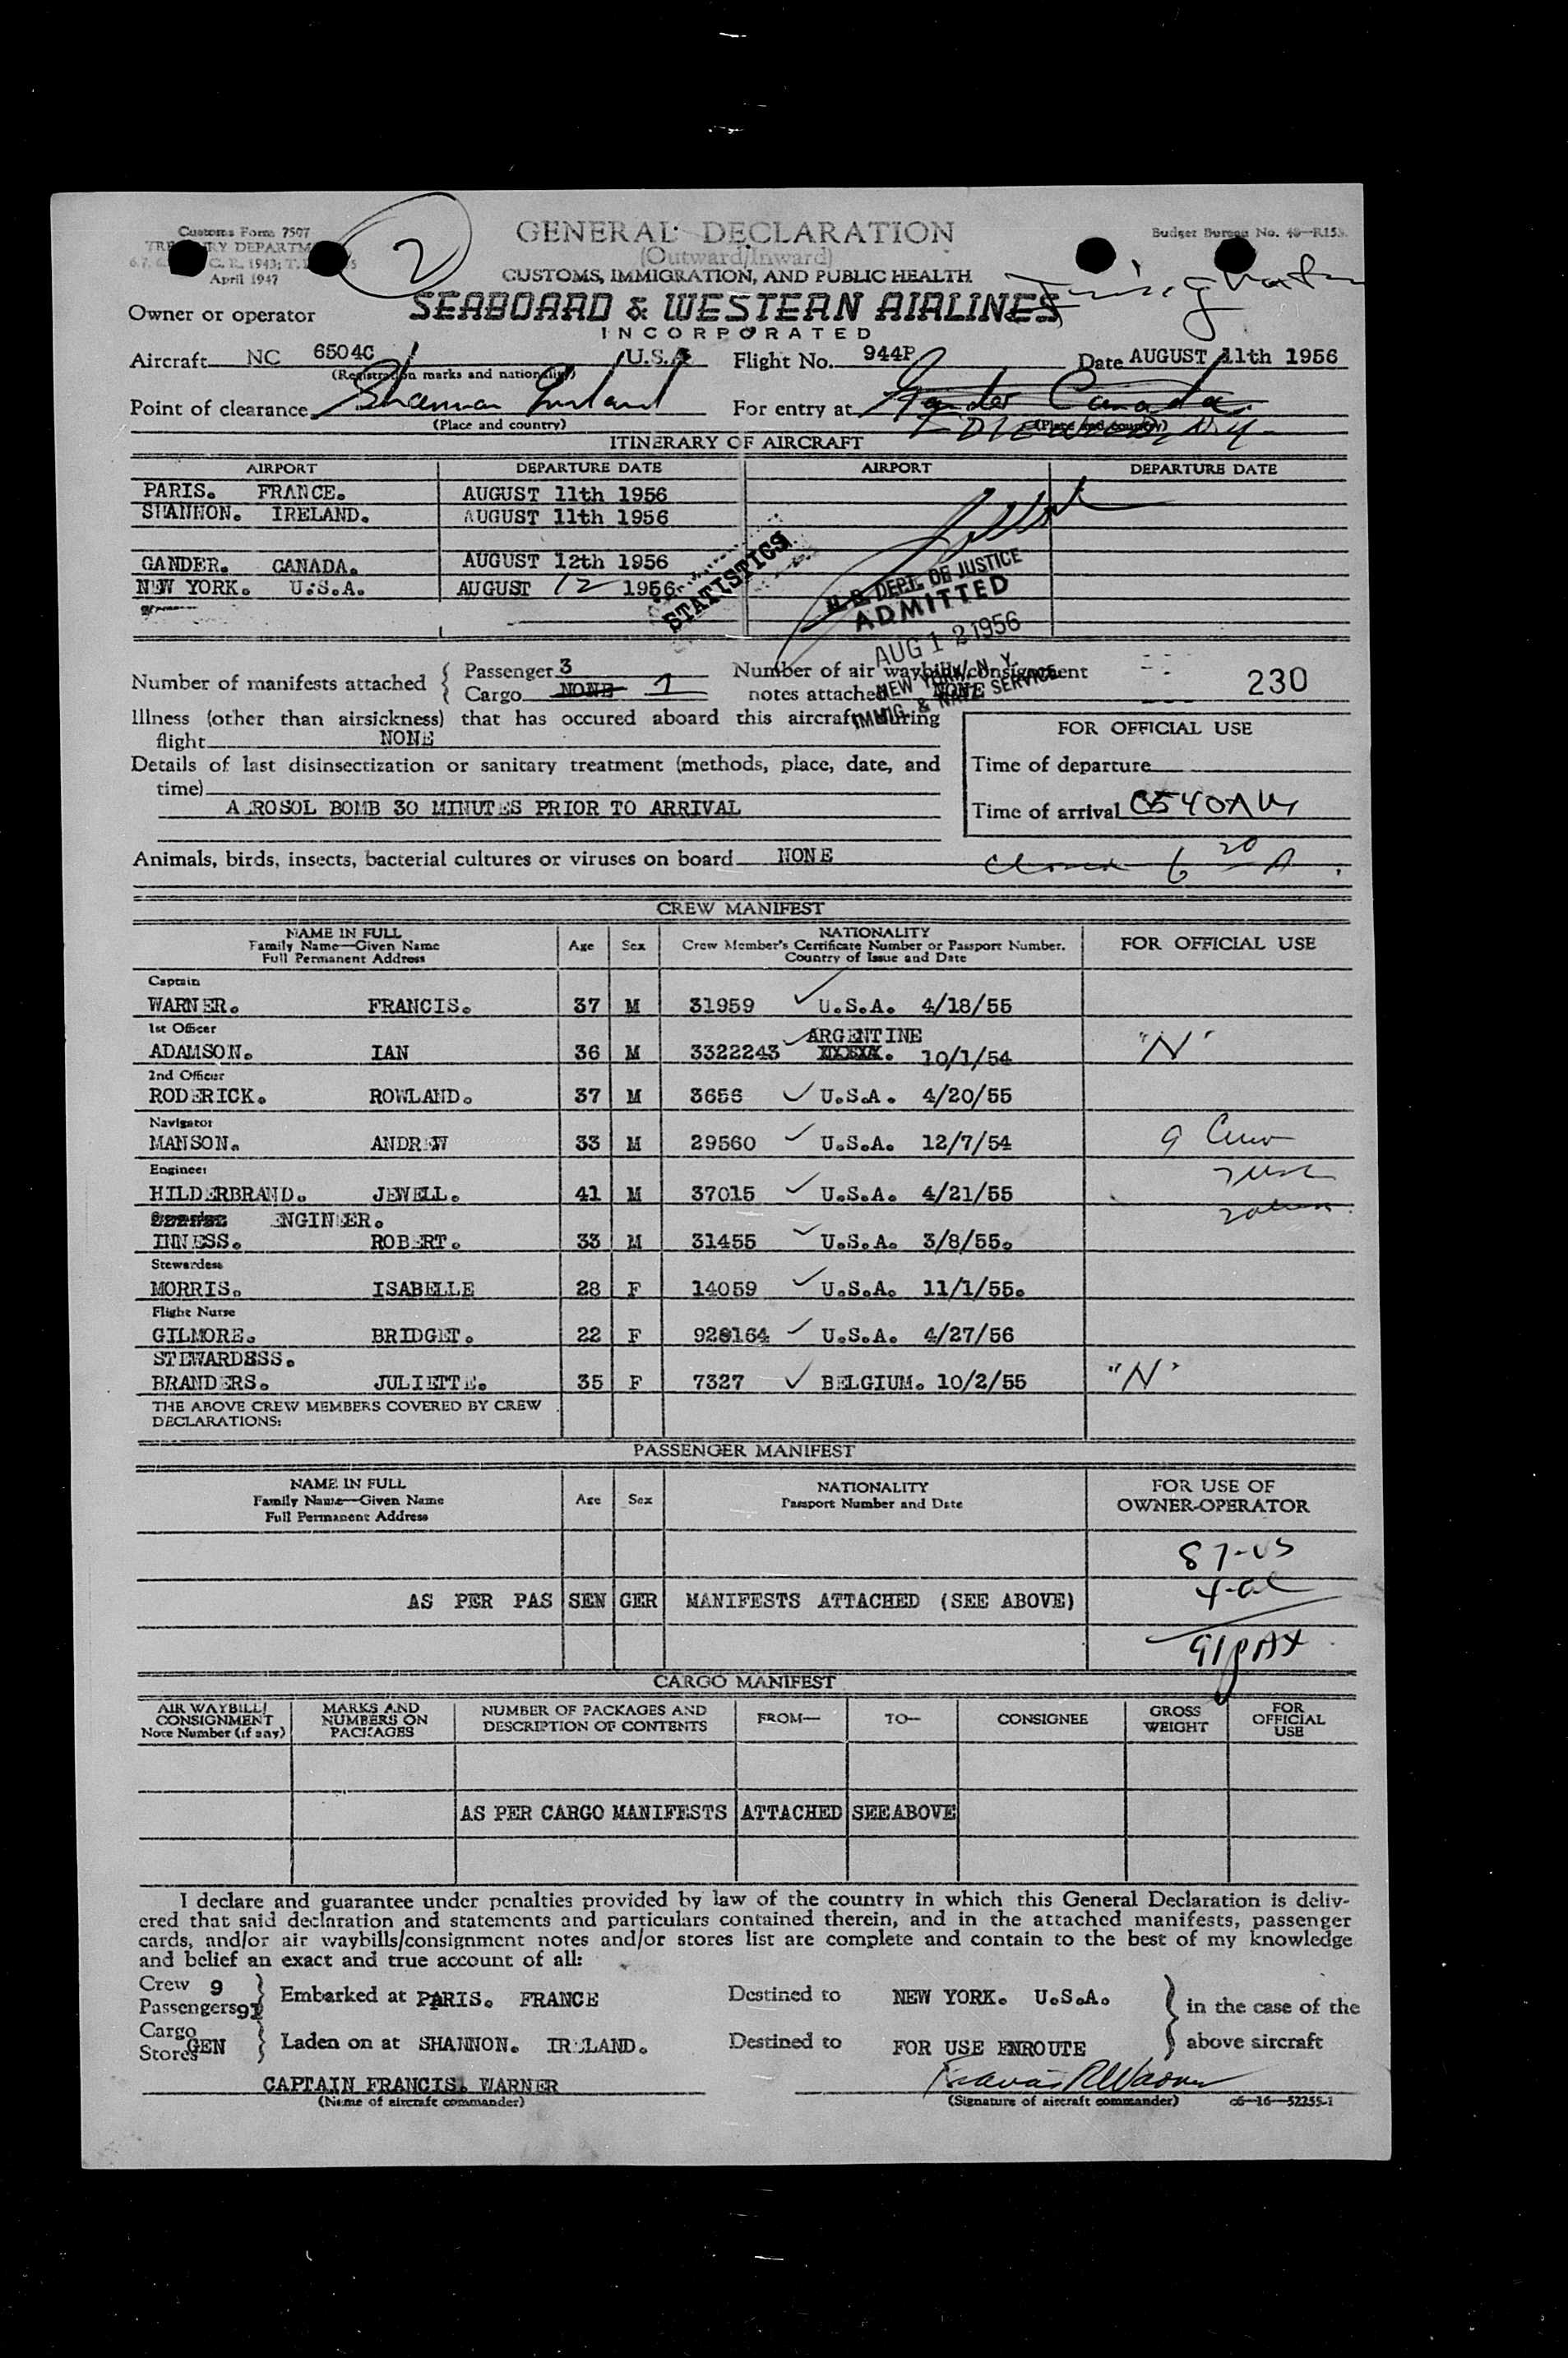 Customs Form 7507
TREASURY DEPARTMENT
April 1947
2
GENERAL DECLARATION
(Outward/Inward)
CUSTOMS, IMMIGRATION, AND PUBLIC HEALTH
Budget Bureau No.
Owner or operator
SEABOARD & WESTERN AIRLINES
INCORPORATED
Aircraft NC 6504C U.S.A Flight No. 944P Date AUGUST 11th 1956
(Registration marks and nationality)
Point of clearance Shannon Ireland For entry at Gander Canada
(Place and country) (Place and country)
IDLEWILD, N.Y.
ITINERARY OF AIRCRAFT
AIRPORT DEPARTURE DATE AIRPORT DEPARTURE DATE
PARIS. FRANCE. AUGUST 11th 1956
SHANNON. IRELAND. AUGUST 11th 1956
GANDER. CANADA. AUGUST 12th 1956
NEW YORK. U.S.A. AUGUST 12 1956
STATISTICS
U.S. DEPT. OF JUSTICE
ADMITTED
AUG 12 1956
NEW YORK, N.Y.
IMMIG. & NATZ SERVICE
Number of manifests attached { Passenger 3
Cargo NONE 1
Number of air waybills/consignment
notes attached NONE
230
Illness (other than airsickness) that has occured aboard this aircraft during
flight NONE
Details of last disinsectization or sanitary treatment (methods, place, date, and
time)
AEROSOL BOMB 30 MINUTES PRIOR TO ARRIVAL
FOR OFFICIAL USE
Time of departure
Time of arrival 0540AM
Animals, birds, insects, bacterial cultures or viruses on board NONE
6 20 A
CREW MANIFEST
NAME IN FULL
Family Name—Given Name
Full Permanent Address
Age Sex
NATIONALITY
Crew Member's Certificate Number or Passport Number.
Country of Issue and Date
FOR OFFICIAL USE
Captain
WARNER. FRANCIS. 37 M 31959 U.S.A. 4/18/55
1st Officer
ADAMSON. IAN 36 M 3322243 ARGENTINE 10/1/54 "N"
2nd Officer
RODERICK. ROWLAND. 37 M 3656 U.S.A. 4/20/55
Navigator
MANSON. ANDREW 33 M 29560 U.S.A. 12/7/54 9 Crew
Engineer
HILDERBRAND. JEWELL. 41 M 37015 U.S.A. 4/21/55
ENGINEER.
INNESS. ROBERT. 33 M 31455 U.S.A. 3/8/55.
Stewardess
MORRIS. ISABELLE 28 F 14059 U.S.A. 11/1/55.
Flight Nurse
GILMORE. BRIDGET. 22 F 928164 U.S.A. 4/27/56
STEWARDSSS.
BRANDERS. JULIETTE. 35 F 7327 BELGIUM. 10/2/55 "N"
THE ABOVE CREW MEMBERS COVERED BY CREW
DECLARATIONS:
PASSENGER MANIFEST
NAME IN FULL
Family Name—Given Name
Full Permanent Address
Age Sex
NATIONALITY
Passport Number and Date
FOR USE OF
OWNER-OPERATOR
87-US
AS PER PAS SEN GER MANIFESTS ATTACHED (SEE ABOVE) 4-al
91 PAX
CARGO MANIFEST
AIR WAYBILL/
CONSIGNMENT
Note Number (if any)
MARKS AND
NUMBERS ON
PACKAGES
NUMBER OF PACKAGES AND
DESCRIPTION OF CONTENTS
FROM— TO— CONSIGNEE
GROSS
WEIGHT
FOR
OFFICIAL
USE
AS PER CARGO MANIFESTS ATTACHED SEE ABOVE
I declare and guarantee under penalties provided by law of the country in which this General Declaration is deliv-
ered that said declaration and statements and particulars contained therein, and in the attached manifests, passenger
cards, and/or air waybills/consignment notes and/or stores list are complete and contain to the best of my knowledge
and belief an exact and true account of all:
Crew 9
Passengers 91
Embarked at PARIS. FRANCE Destined to NEW YORK. U.S.A. in the case of the
Cargo
Stores GEN
Laden on at SHANNON. IRELAND. Destined to FOR USE ENROUTE above aircraft
CAPTAIN FRANCIS. WARNER Francis R Warner
(Name of aircraft commander) (Signature of aircraft commander) c6—16—52255-1